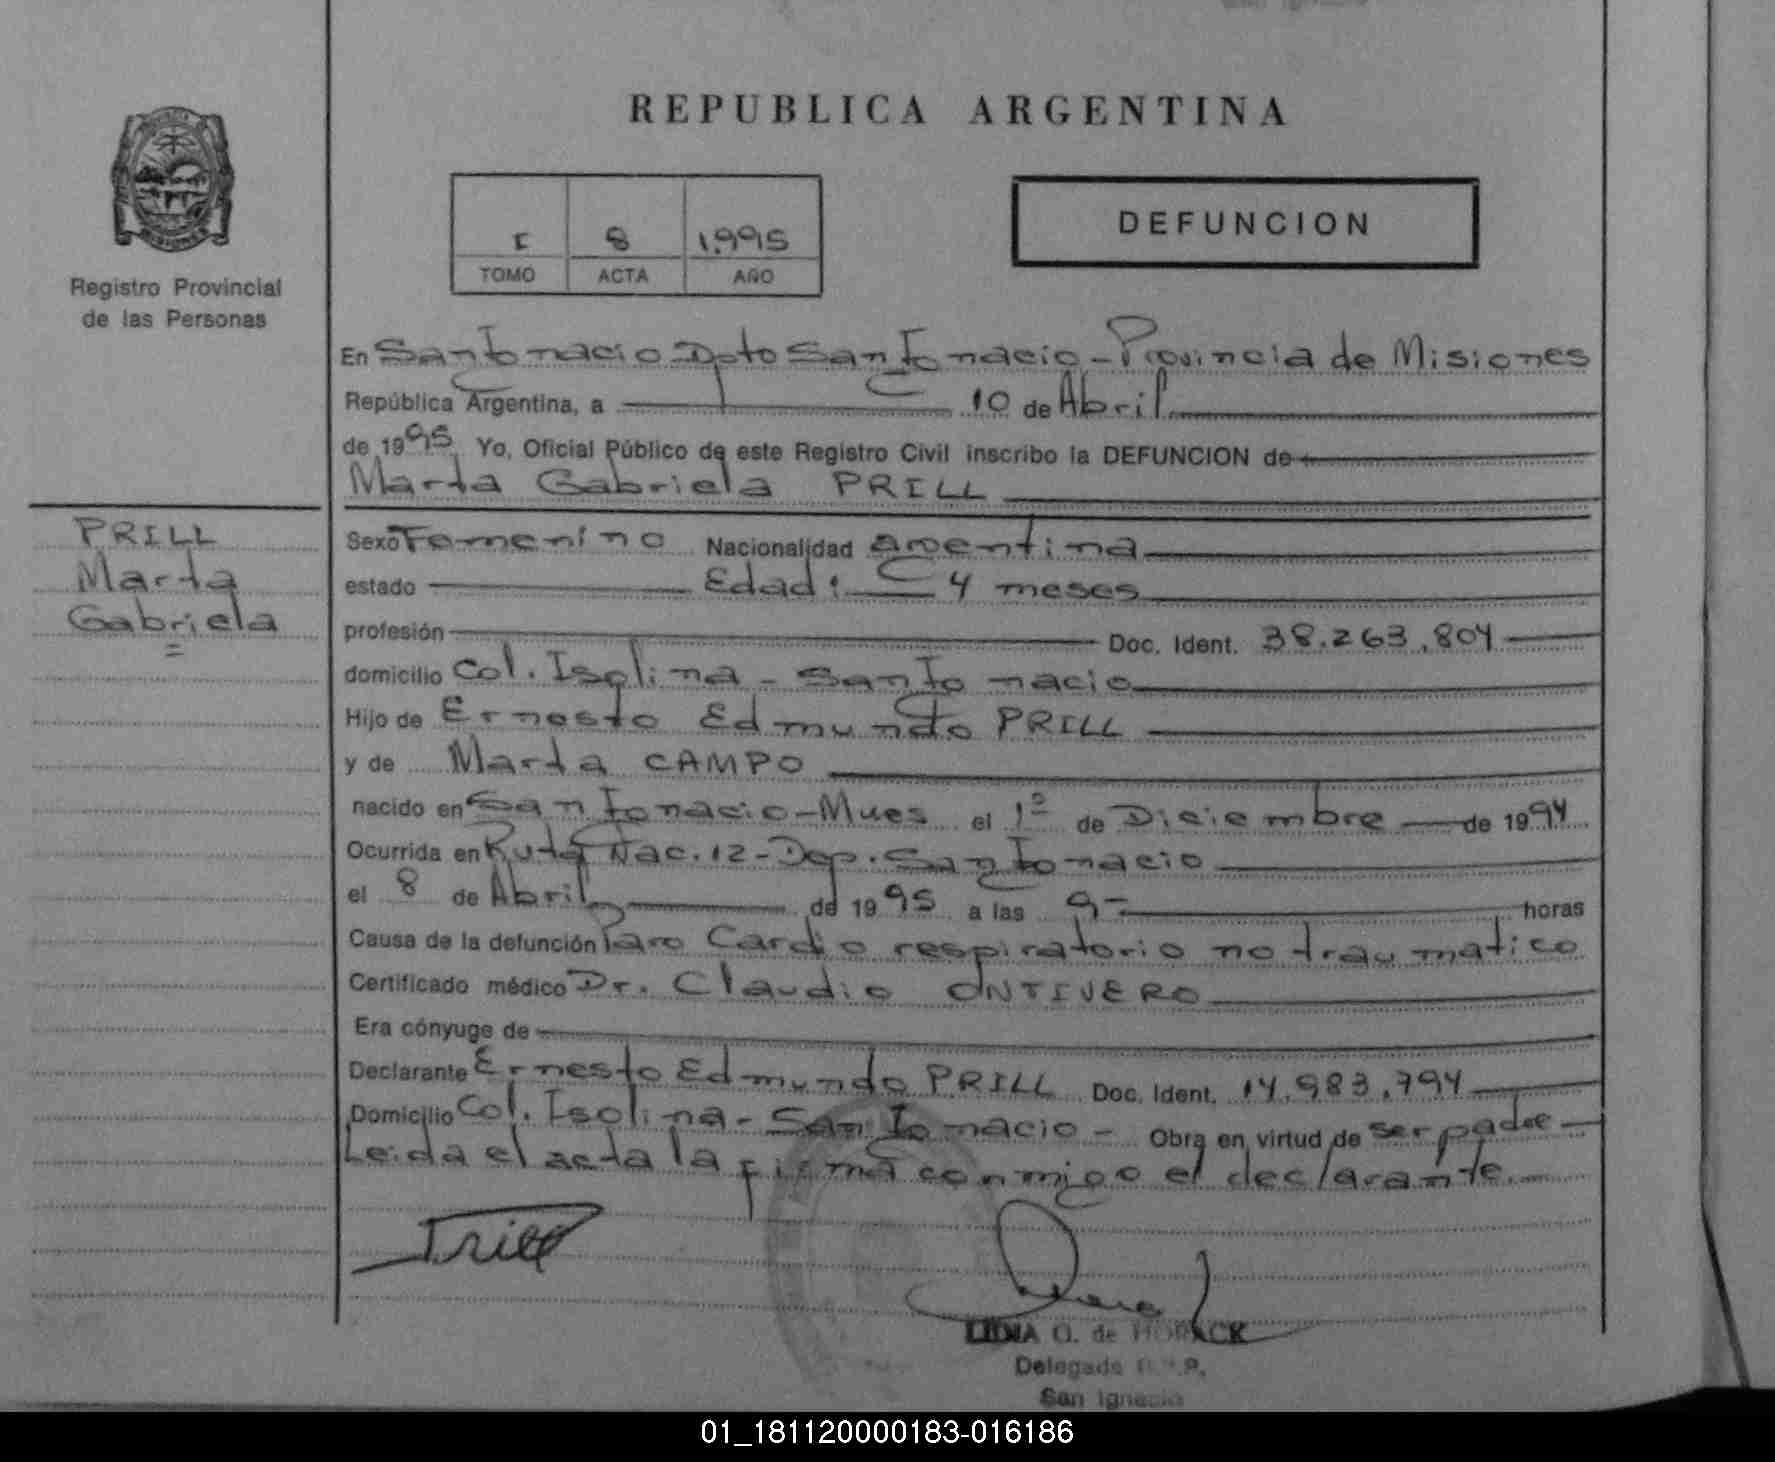 REPUBLICA ARGENTINA
MISIONES
Registro Provincial
de las Personas
I 8 1.995
TOMO ACTA AÑO
DEFUNCION
En San Ignacio Dpto San Ignacio - Provincia de Misiones
República Argentina, a 10 de Abril
de 1995 Yo, Oficial Público de este Registro Civil inscribo la DEFUNCION de
Marta Gabriela PRILL
PRILL
Marta
Gabriela
Sexo Femenino Nacionalidad argentina
estado Edad: 4 meses
profesión Doc. Ident. 38.263.804
domicilio Col. Isolina - San Ignacio
Hijo de Ernesto Edmundo PRILL
y de Marta CAMPO
nacido en San Ignacio - Mnes el 1º de Diciembre de 1994
Ocurrida en Ruta Nac. 12 - Dep. San Ignacio
el 8 de Abril de 1995 a las 9- horas
Causa de la defunción Paro Cardio respiratorio no traumatico
Certificado médico Dr. Claudio ONTIVERO
Era cónyuge de
Declarante Ernesto Edmundo PRILL Doc. Ident. 14.983.794
Domicilio Col. Isolina - San Ignacio - Obra en virtud de ser padre
Leida el acta la firma conmigo el declarante.
Prill
LIDIA O. de HORACK
Delegada R.P.P.
San Ignacio
01_181120000183-016186